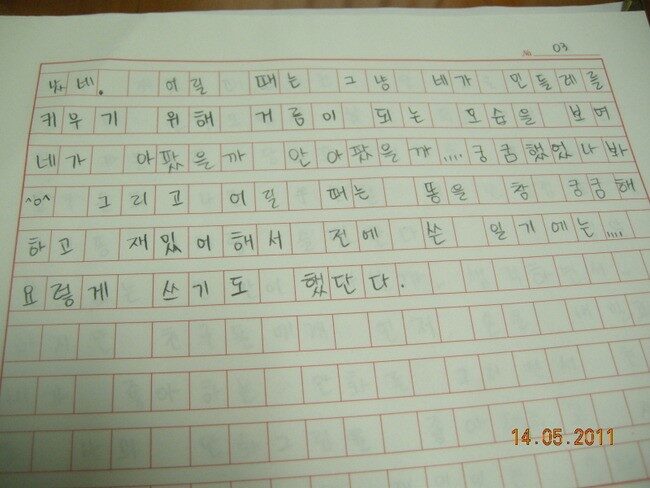 № 03
봐네. 어릴 때는 그냥 네가 민들레를
키우기 위해 거름이 되는 모습을 보여
네가 아팠을까 안 아팠을까.... 궁금했었나봐
^o^ 그리고 어릴 때는 똥을 참 궁금해
하고 재밌어해서 전에 쓴 일기에는....
요렇게 쓰기도 했단다.
14.05.2011